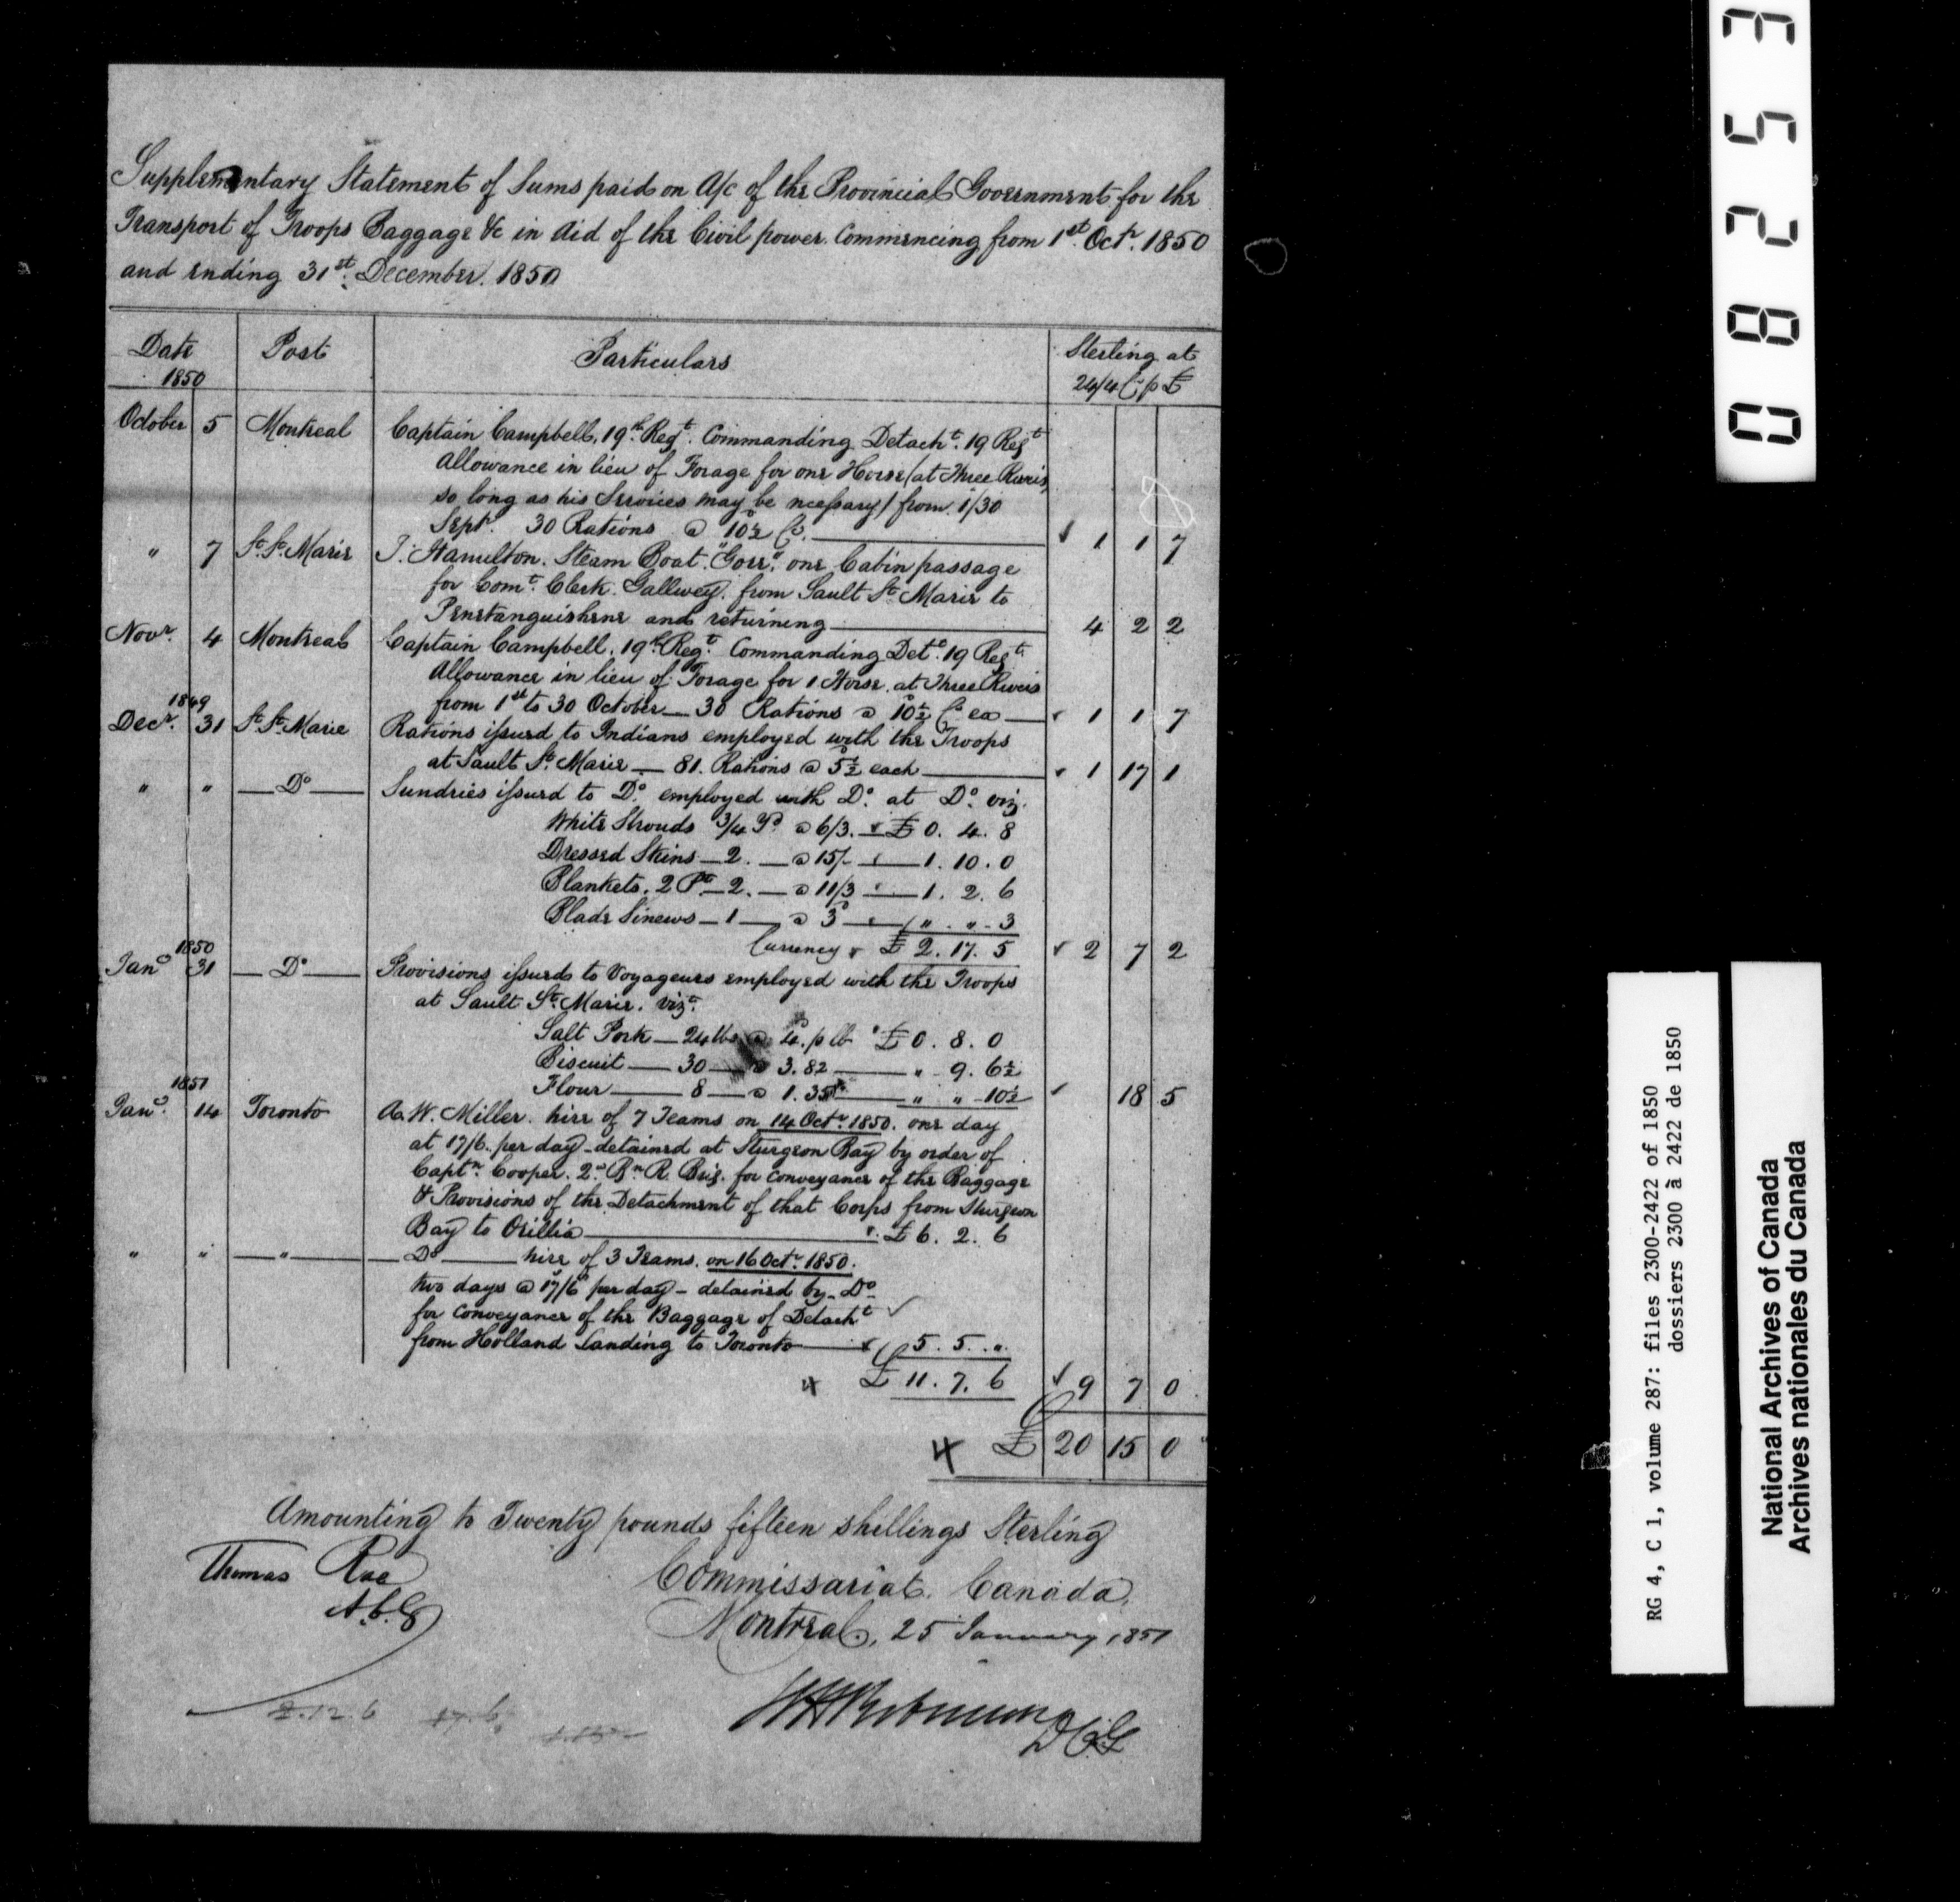 Supplementary Statement of Sums paid on A/c of the Provincial Government for the
Transport of Troops Baggage &c in aid of the Civil power. Commencing from 1st. Octr. 1850
and ending 31st. December. 1850
Date 1850 Post Particulars Sterling at 24/4 Cy p £
October 5 Montreal Captain Campbell, 19th Regt. Commanding Detacht. 19 Regt
Allowance in lieu of Forage for one Horse (at Three Rivers
so long as his Services may be necessary) from 1/30
Sept. 30 Rations @ 10½d Cy. 1 1 7
" 7 St. Ste. Marie J. Hamilton. Steam Boat "Gore". one Cabin passage
for Comt. Clerk. Gallwey. from Sault Ste Marie to
Penetanguishene and returning 4 2 2
Novr. 4 Montreal Captain Campbell. 19th Regt. Commanding Dett. 19 Regt.
Allowance in lieu of Forage for 1 Horse. at Three Rivers
from 1st to 30 October 30 Rations @ 10½d Cy ea 1 1 7
1849
Decr. 31 St. Ste. Marie Rations issued to Indians employed with the Troops
at Sault Ste. Marie 81. Rations @ 5½d each 1 17 1
" " Do Sundries issued to Do. employed with Do. at Do. viz.
White Strouds 3/4 Yd @ 6/3. £ 0. 4. 8
Dressed Skins 2. @ 15/- 1. 10. 0
Blankets. 2 Pt 2. @ 11/3 1. 2. 6
Blade Sinews 1 @ 3d " " 3
Currency £ 2. 17. 5 2 7 2
1850
Jany 31 Do Provisions issued to Voyageurs employed with the Troops
at Sault Ste. Marie. vizt.
Salt Pork 24 lbs @ 4d. p lb £ 0. 8. 0
Biscuit 30 @ 3.82 " 9. 6½
Flour 8 @ 1.35 " " 10½ 18 5
1851
Jany. 14 Toronto A. W. Miller. hire of 7 Teams on 14 Octr. 1850. one day
at 17/6. per day detained at Sturgeon Bay by order of
Captn. Cooper. 2nd Bn R. Brig. for conveyance of the Baggage
& Provisions of the Detachment of that Corps from Sturgeon
Bay to Orillia £ 6. 2. 6
" " " Do hire of 3 Teams. on 16 Octr. 1850.
two days @ 17/6 per day detained by Do
for conveyance of the Baggage of Detacht
from Holland Landing to Toronto 5. 5. "
£ 11. 7. 6 9 7 0
£ 20 15 0
Amounting to Twenty pounds fifteen shillings Sterling
Thomas Rae
A.C.G
Commissariat. Canada,
Montreal, 25 January 1851
DCG
2.12.6 17.6
08253
RG 4, C 1, volume 287: files 2300-2422 of 1850
dossiers 2300 à 2422 de 1850
National Archives of Canada
Archives nationales du Canada